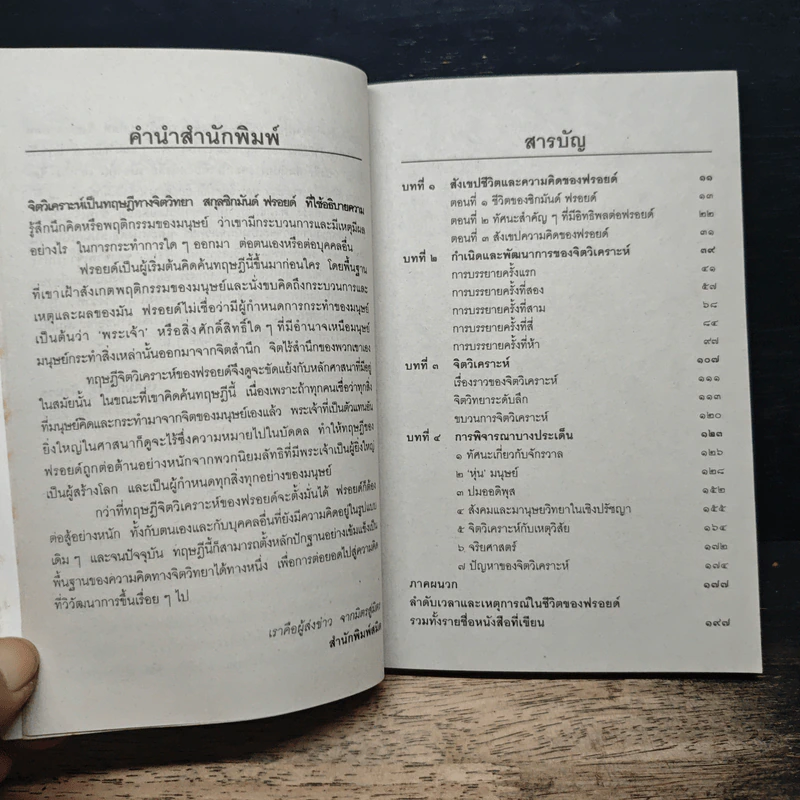 คำนำสำนักพิมพ์
จิตวิเคราะห์เป็นทฤษฎีทางจิตวิทยา สกุลซิกมันด์ ฟรอยด์ ที่ใช้อธิบายความ
รู้สึกนึกคิดหรือพฤติกรรมของมนุษย์ ว่าเขามีกระบวนการและมีเหตุมีผล
อย่างไร ในการกระทำการใด ๆ ออกมา ต่อตนเองหรือต่อบุคคลอื่น
ฟรอยด์เป็นผู้เริ่มต้นคิดค้นทฤษฎีนี้ขึ้นมาก่อนใคร โดยพื้นฐาน
ที่เขาเฝ้าสังเกตพฤติกรรมของมนุษย์และนั่งขบคิดถึงกระบวนการและ
เหตุและผลของมัน ฟรอยด์ไม่เชื่อว่ามีผู้กำหนดการกระทำของมนุษย์
เป็นต้นว่า 'พระเจ้า' หรือสิ่งศักดิ์สิทธิ์ใด ๆ ที่มีอำนาจเหนือมนุษย์
มนุษย์กระทำสิ่งเหล่านั้นออกมาจากจิตสำนึก จิตไร้สำนึกของพวกเขาเอง
ทฤษฎีจิตวิเคราะห์ของฟรอยด์จึงดูจะขัดแย้งกับหลักศาสนาที่มีอยู่
ในสมัยนั้น ในขณะที่เขาคิดค้นทฤษฎีนี้ เนื่องเพราะถ้าทุกคนเชื่อว่าทุกสิ่ง
ที่มนุษย์คิดและกระทำมาจากจิตของมนุษย์เองแล้ว พระเจ้าที่เป็นตัวแทนอัน
ยิ่งใหญ่ในศาสนาก็ดูจะไร้ซึ่งความหมายไปในบัดดล ทำให้ทฤษฎีของ
ฟรอยด์ถูกต่อต้านอย่างหนักจากพวกนิยมลัทธิที่มีพระเจ้าเป็นผู้ยิ่งใหญ่
เป็นผู้สร้างโลก และเป็นผู้กำหนดทุกสิ่งทุกอย่างของมนุษย์
กว่าที่ทฤษฎีจิตวิเคราะห์ของฟรอยด์จะตั้งมั่นได้ ฟรอยด์ก็ต้อง
ต่อสู้อย่างหนัก ทั้งกับตนเองและกับบุคคลอื่นที่ยังมีความคิดอยู่ในรูปแบบ
เดิม ๆ และจนปัจจุบัน ทฤษฎีนี้ก็สามารถตั้งหลักปักฐานอย่างเข้มแข็งเป็น
พื้นฐานของความคิดทางจิตวิทยาได้ทางหนึ่ง เพื่อการต่อยอดไปสู่ความคิด
ที่วิวัฒนาการขึ้นเรื่อย ๆ ไป
เราคือผู้ส่งข่าว จากมิตรสู่มิตร
สำนักพิมพ์สมิต
สารบัญ
บทที่ ๑ สังเขปชีวิตและความคิดของฟรอยด์ ๑๑
ตอนที่ ๑ ชีวิตของซิกมันด์ ฟรอยด์ ๑๓
ตอนที่ ๒ ทัศนะสำคัญ ๆ ที่มีอิทธิพลต่อฟรอยด์ ๒๒
ตอนที่ ๓ สังเขปความคิดของฟรอยด์ ๓๑
บทที่ ๒ กำเนิดและพัฒนาการของจิตวิเคราะห์ ๓๙
การบรรยายครั้งแรก ๔๑
การบรรยายครั้งที่สอง ๕๗
การบรรยายครั้งที่สาม ๖๘
การบรรยายครั้งที่สี่ ๘๔
การบรรยายครั้งที่ห้า ๙๗
บทที่ ๓ จิตวิเคราะห์ ๑๐๗
เรื่องราวของจิตวิเคราะห์ ๑๑๑
จิตวิทยาระดับลึก ๑๑๓
ขบวนการจิตวิเคราะห์ ๑๒๐
บทที่ ๔ การพิจารณาบางประเด็น ๑๒๓
๑ ทัศนะเกี่ยวกับจักรวาล ๑๒๖
๒ 'หุ่น' มนุษย์ ๑๒๘
๓ ปมออดิพุส ๑๕๒
๔ สังคมและมานุษยวิทยาในเชิงปรัชญา ๑๕๕
๕ จิตวิเคราะห์กับเหตุวิสัย ๑๖๔
๖ จริยศาสตร์ ๑๗๒
๗ ปัญหาของจิตวิเคราะห์ ๑๗๔
ภาคผนวก ๑๗๗
ลำดับเวลาและเหตุการณ์ในชีวิตของฟรอยด์
รวมทั้งรายชื่อหนังสือที่เขียน ๑๙๗